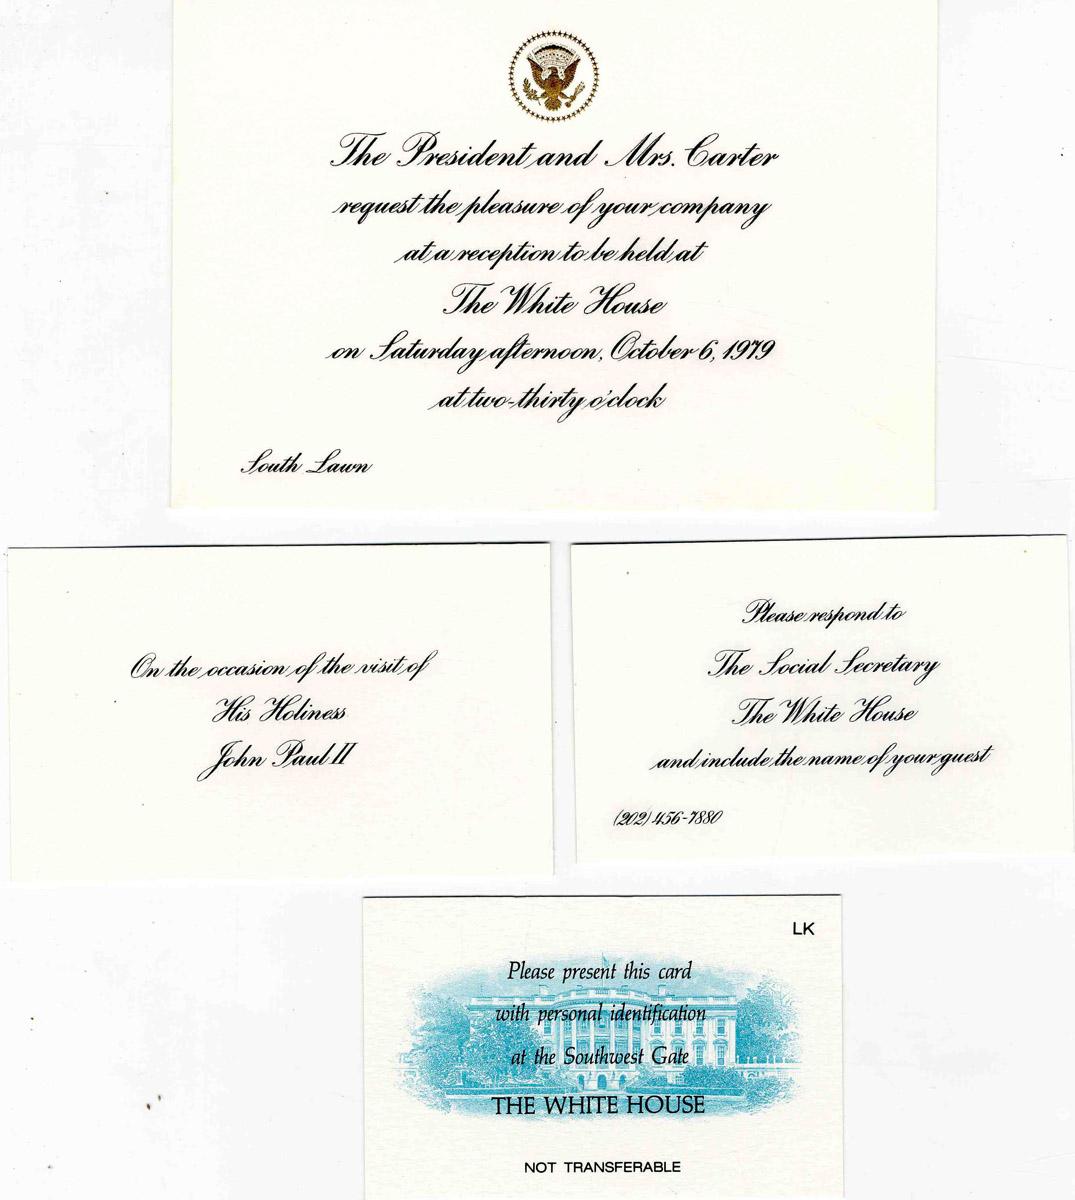 The President and Mrs. Carter
request the pleasure of your company
at a reception to be held at
The White House
on Saturday afternoon, October 6, 1979
at two-thirty o'clock
South Lawn
On the occasion of the visit of
His Holiness
John Paul II
Please respond to
The Social Secretary
The White House
and include the name of your guest
(202) 456-7880
LK
Please present this card
with personal identification
at the Southwest Gate
THE WHITE HOUSE
NOT TRANSFERABLE